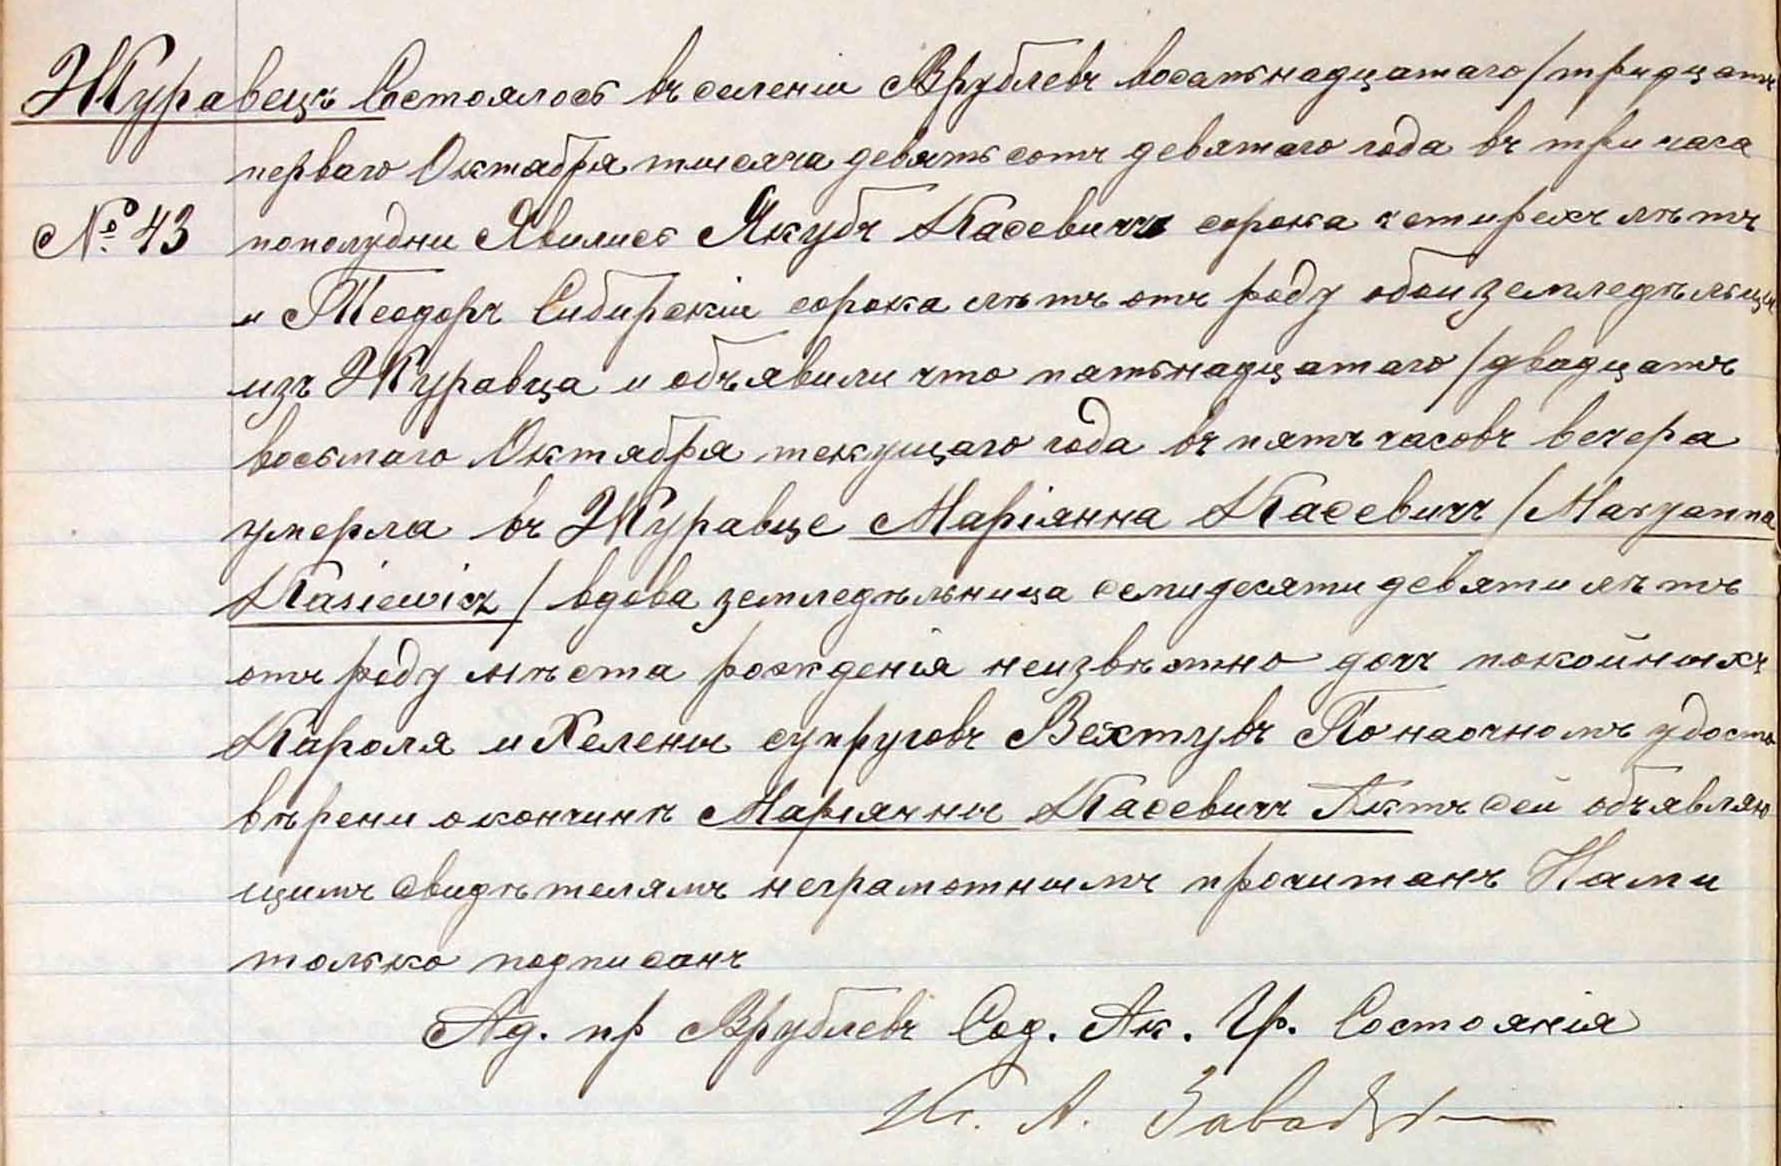 Журавецъ Состоялось въ селеніи Врублевъ восемьнадцатаго/тридцать
перваго Октабря тысяча девятьсотъ девятаго года въ три часа
№ 43 пополудни Явились Якубъ Касевичъ сорока четырехъ лѣтъ
и Теодоръ Сибирскій сорока лѣтъ отъ роду оба земледѣльцы
изъ Журавца и объявили что патьнадцатаго/двадцать
восьмаго Октября текущаго года въ пять часовъ вечера
умерла въ Журавце Маріянна Касевичъ/Maryanna
Kasiewicz/вдова земледѣльница семидесяти девяти лѣтъ
отъ роду мѣста рожденія неизвѣстно дочъ покойныхъ
Кароля и Хелены супруговъ Вехтувъ По наочномъ удосто
вѣрени о кончинѣ Маріянны Касевичъ Актъ сей объявляю
щимъ свидѣтелямъ неграмотнымъ прочитанъ Нами
только подписанъ
Ад. пр Врублевъ Сод. Ак. Гр. Состоянія
Кс. А.